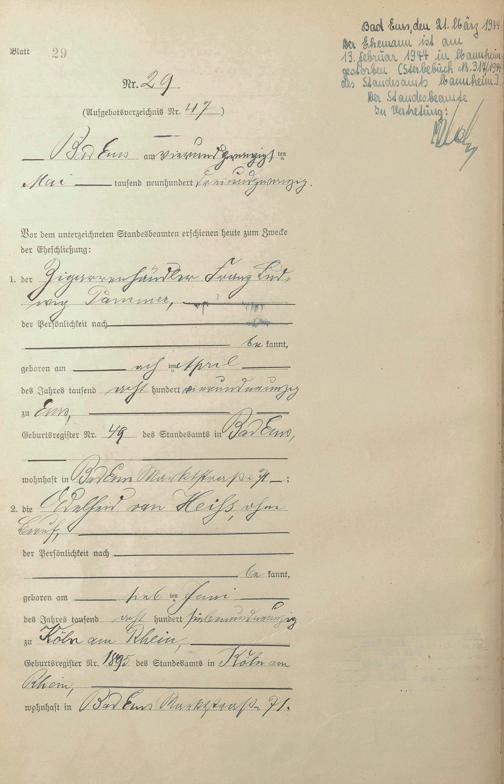 Bad Ems, den 21. März 1944
Der Ehemann ist am
13. Februar 1944 in Mannheim
gestorben (Sterbebuch Nr. 319/1944
des Standesamts Mannheim)
Der Standesbeamte
In Vertretung:
Blatt 29
Nr. 29
(Aufgebotsverzeichnis Nr. 47)
Bad Ems am vierundzwanzigsten
Mai tausend neunhundert dreiundzwanzig.
Vor dem unterzeichneten Standesbeamten erschienen heute zum Zwecke
der Eheschließung:
1. der Zigarrenhändler Franz Lud-
wig
der Persönlichkeit nach
be kannt,
geboren am ten April
des Jahres tausend acht hundert vierundneunzig
zu Ems,
Geburtsregister Nr. 49 des Standesamts in Bad Ems,
wohnhaft in Bad Ems Marktstraße 71;
2. die von Heiss, ohne
Beruf,
der Persönlichkeit nach
be kannt,
geboren am ten Juni
des Jahres tausend acht hundert siebenundneunzig
zu Köln am Rhein,
Geburtsregister Nr. des Standesamts in Köln am
Rhein,
wohnhaft in Bad Ems Marktstraße 71.